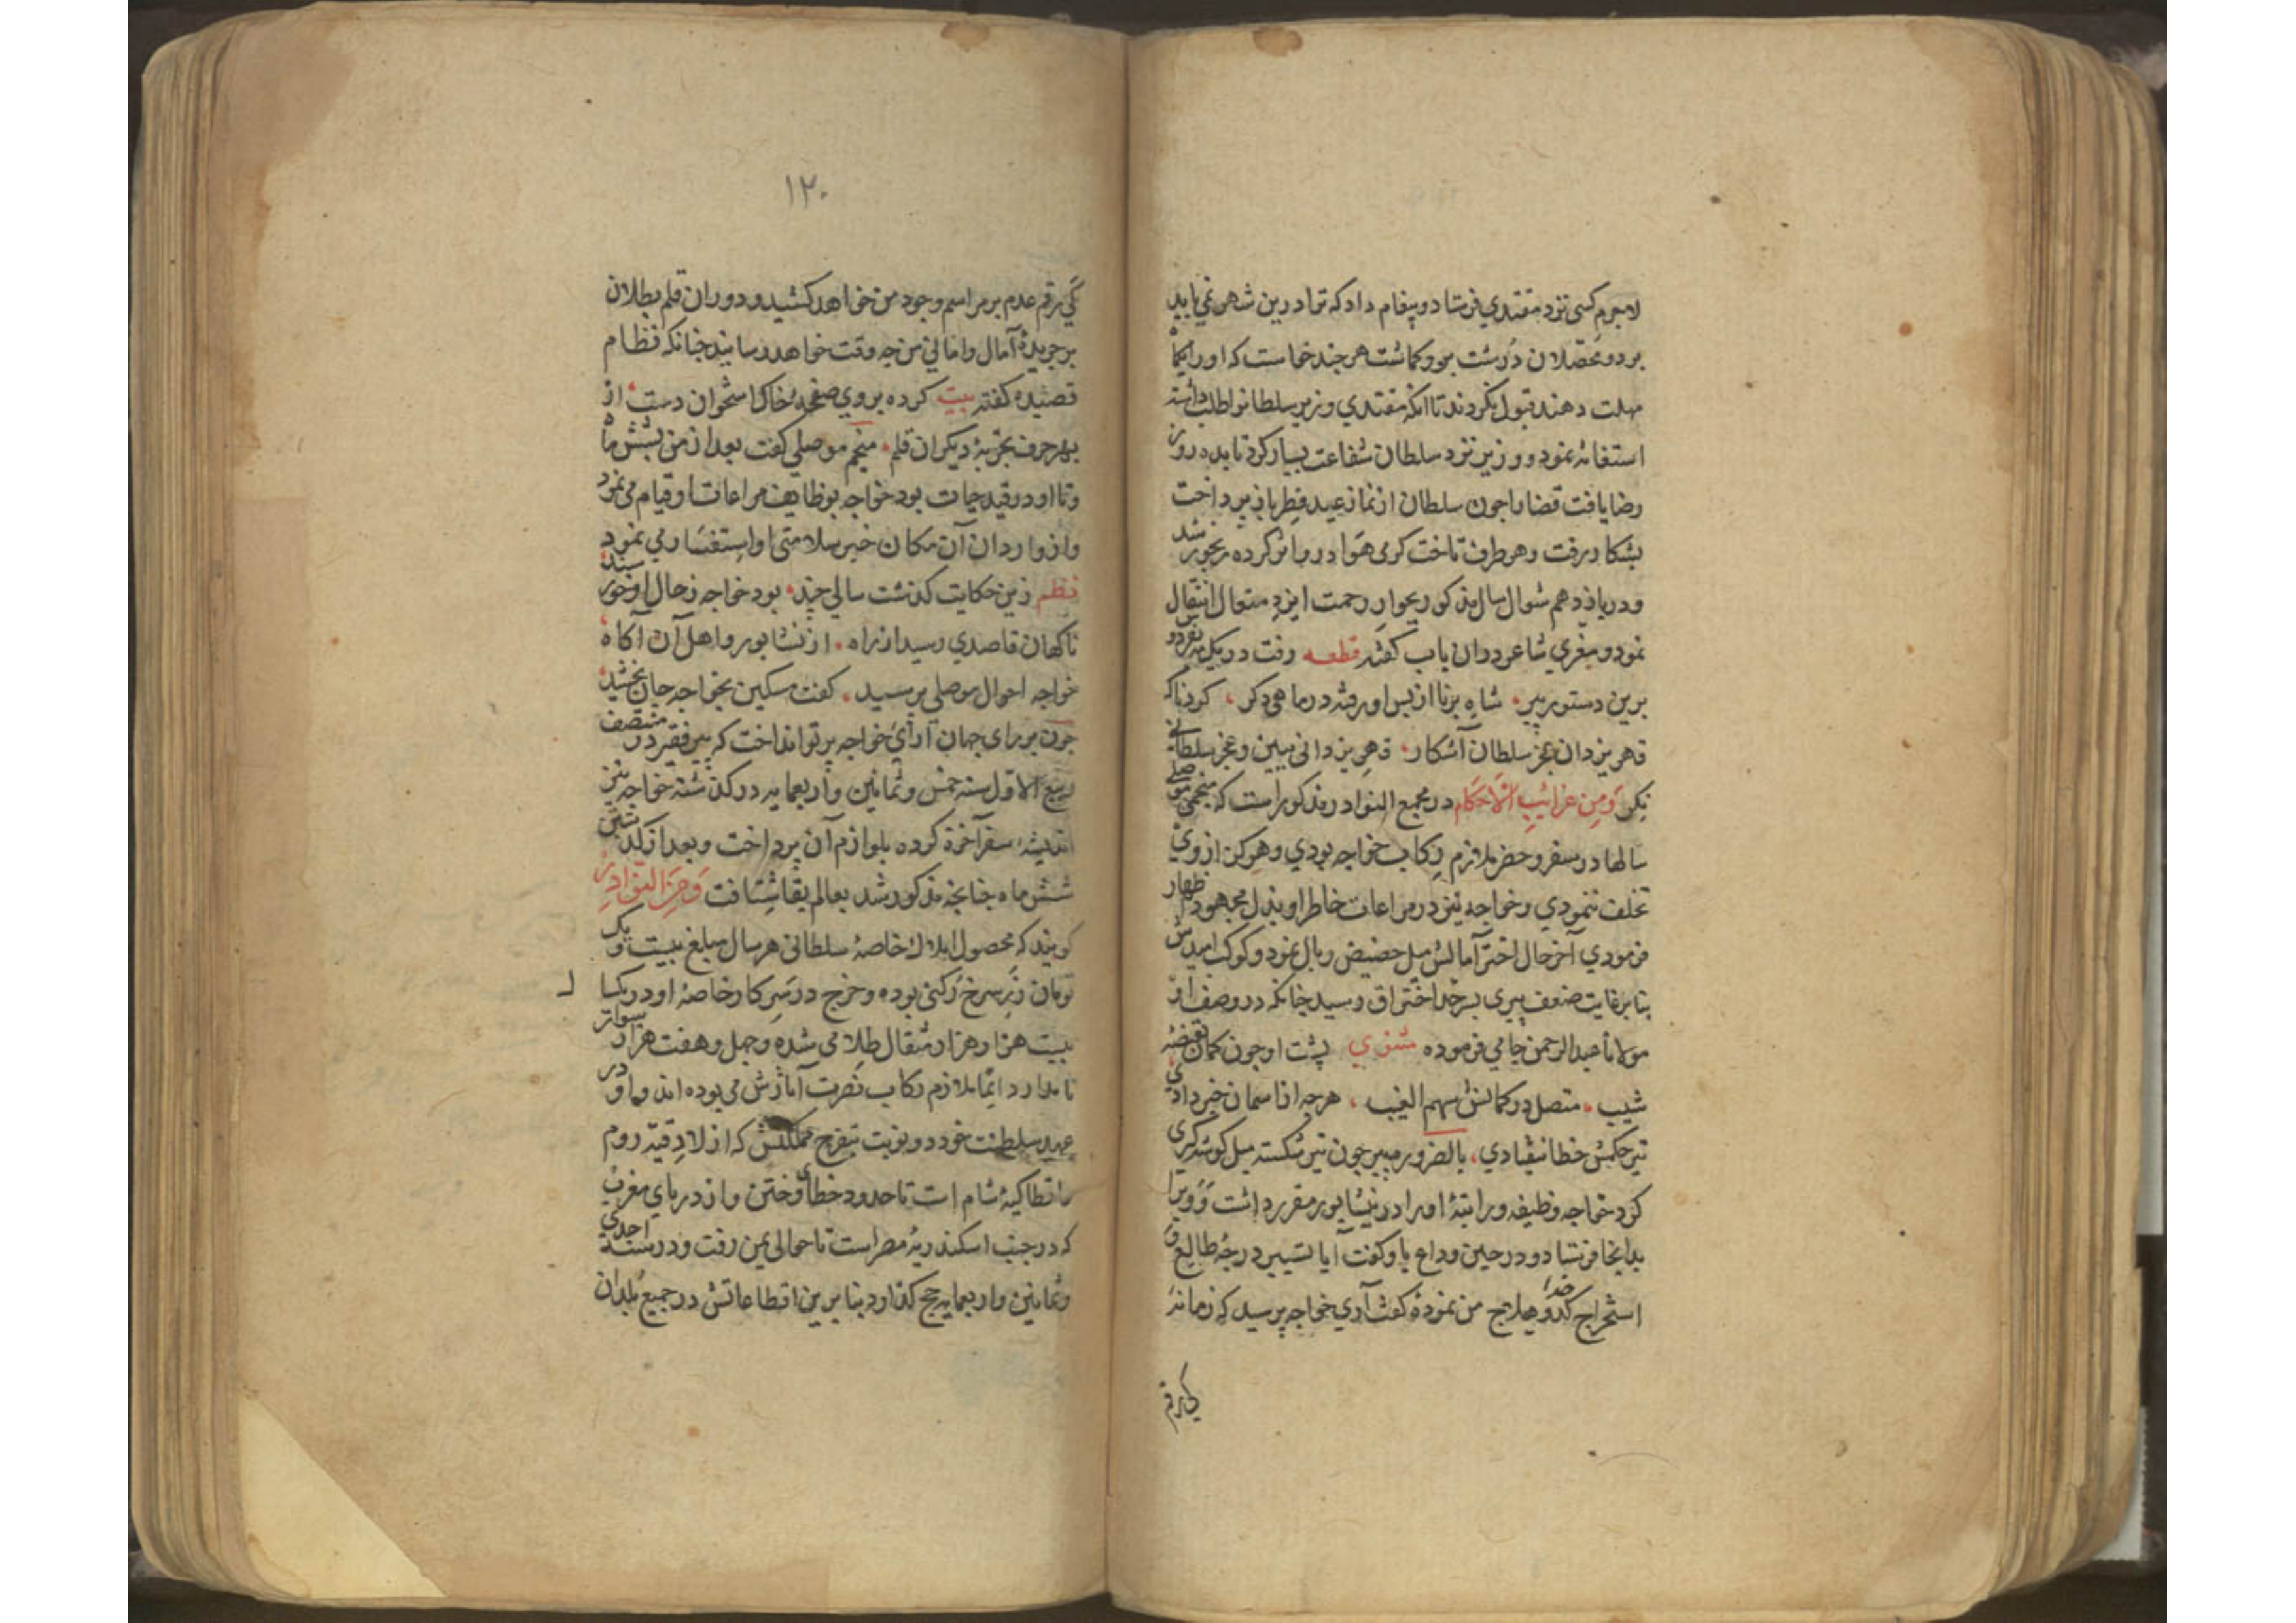 لاجرم کسی نزد مقتدي فرستاد و پیغام داد که ترا درین شهر نمي باید
بود و محصلان درشت بروکماشت هرچند خواست که او را یکماه
مهلت دهند قبول نکردند تا آنکه مقتدي وزیر سلطانرا طلب داشته
استغاثه نمود و وزیر نزد سلطان شفاعت بسیار کرد تا بده روز
رضا یافت قضا را چون سلطان از نماز عید فطر باز پرداخت
بشکار رفت و هر طرف تاخت کرمی هوا درو اثر کرده رنجور شد
و در یازدهم شوال سال مذکور بجوار رحمت ایزد متعال انتقال
نمود و مغري شاعر دران باب کفته قطعه رفت در یک مه بفردوس
برین دستور پیر شاه برنا از پس او رفته در ماهی دکر کرد ناکه
قهر یزدان عجز سلطان آشکار قهر یزدانی ببین و عجز سلطانی
نکر ومن غرائب الاحکام در مجمع النوادر مذکور است که منجمی موصلی
سالها در سفر و حضر ملازم رکاب خواجه بودي و هرکز از وي
تخلف ننمودي و خواجه نیز در مراعات خاطر او بذل مجهود اظهار
فرمودي آخر حال اختر آمالش میل حضیض وبال نمود و کوکب امیدش
بنابر غایت ضعف پیری بسرحد احتراق رسید چنانکه در وصف او
مولانا عبد الرحمن جامي فرموده مثنوي پشت او چون کمان
شیب متصل در کمانش سهم الغیب هرچه از اسمان خبر دادي
تیر حکمش خطا نیفتادي بالضرور میر چون تیر شکسته میل کوشه کیری
کرد خواجه وظیفه و راتبۀ او را در نیشابور مقرر داشت و ویرا
بدانجا فرستاد و در حین وداع باو کفت آیا تسییر درجۀ طالع و
استخراج کدخدا و هیلاج من نمودۀ کفت آري خواجه پرسید که زمانه
کي رقم
۱۲۰
کي رقم عدم بر مراسم وجود من خواهد کشید و دوران قلم بطلان
بر جریدۀ آمال و امانی من چه وقت خواهد رسانید چنانکه نظام
قصیده کفته بیت کرده بر وي صفحه خاک استخوان دست از
بهر حرف تجربۀ دیکران قلم منجم موصلي کفت بعد از من بشش ماه
و تا او در قید حیات بود خواجه بوظایف مراعات او قیام می نمود
و از واردان آن مکان خبر سلامتی او استفسار می نمود
نظم زین حکایت کذشت سالي چند بود خواجه ز حال او خورسند
ناکهان قاصدي رسید از راه از نشابور و اهل آن آکاه
خواجه احوال موصلي پرسید کفت مسکین بخواجه جان بخشید
چون بر رای جهان آراي خواجه پرتو انداخت که پیر فقیر در منتصف
ربیع الاول سنه خمس و ثمانین و اربعمایه درکذشته خواجه نیز
اندیشه سفر آخرة کرده بلوازم آن پرداخت و بعد از کذشتن
شش ماه چنانچه مذکور شد بعالم بقا شتافت ومن النوادر
کویند که محصول املاک خاصۀ سلطانی هر سال مبلغ بیست و یک
تومان زر سرخ رکنی بوده و خرج در سرکار خاصۀ او در یکسال
بیست هزار هزار مثقال طلا می شده و چهل و هفت هزار سوار
نامدار دایما ملازم رکاب نصرت آثارش می بوده اند و او در
عهد سلطنت خود دو نوبت بتفرج مملکتش که از لاذقیه روم
و انطاکیۀ شام است تا حدود خطای و ختن و از دریای مغرب
که در جنب اسکندریۀ مصر است تا حوالی یمن رفت و در سنۀ احدی
و ثمانین و اربعمایه حج کذارد بنا برین اقطاعاتش در جمیع بلدان